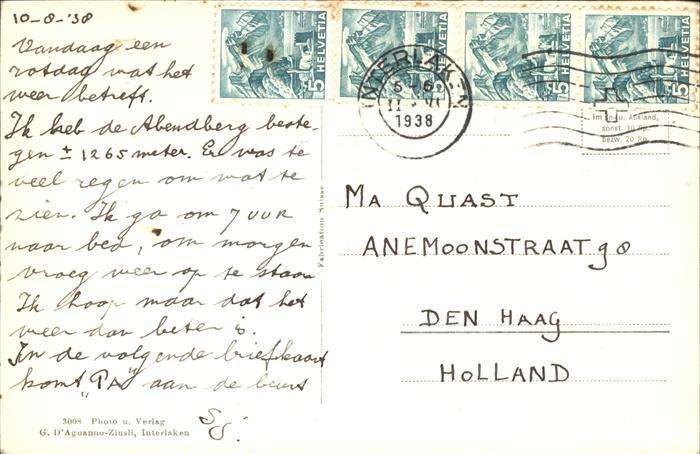 10-8-'38
Vandaag een
rotdag wat het
weer betreft.
Ik heb de Abendberg beste-
gen ± 1265 meter. Er was te
veel regen om wat te
zien. Ik ga om 7 uur
naar bed, om morgen
vroeg weer op te staan
Ik hoop maar dat het
weer dan beter is.
In de volgende briefkaart
komt "PA" aan de beurt
3008 Photo u. Verlag
G. D'Aguanno-Zinsli, Interlaken
HELVETIA 5
HELVETIA 5
HELVETIA 5
HELVETIA 5
INTERLAKEN
1938
im Inl. u. Ausland,
sonst. 10 Rp.
bezw. 20 Rp.
Fabrication Suisse
MA QUAST
ANEMOONSTRAAT 98
DEN HAAG
HOLLAND